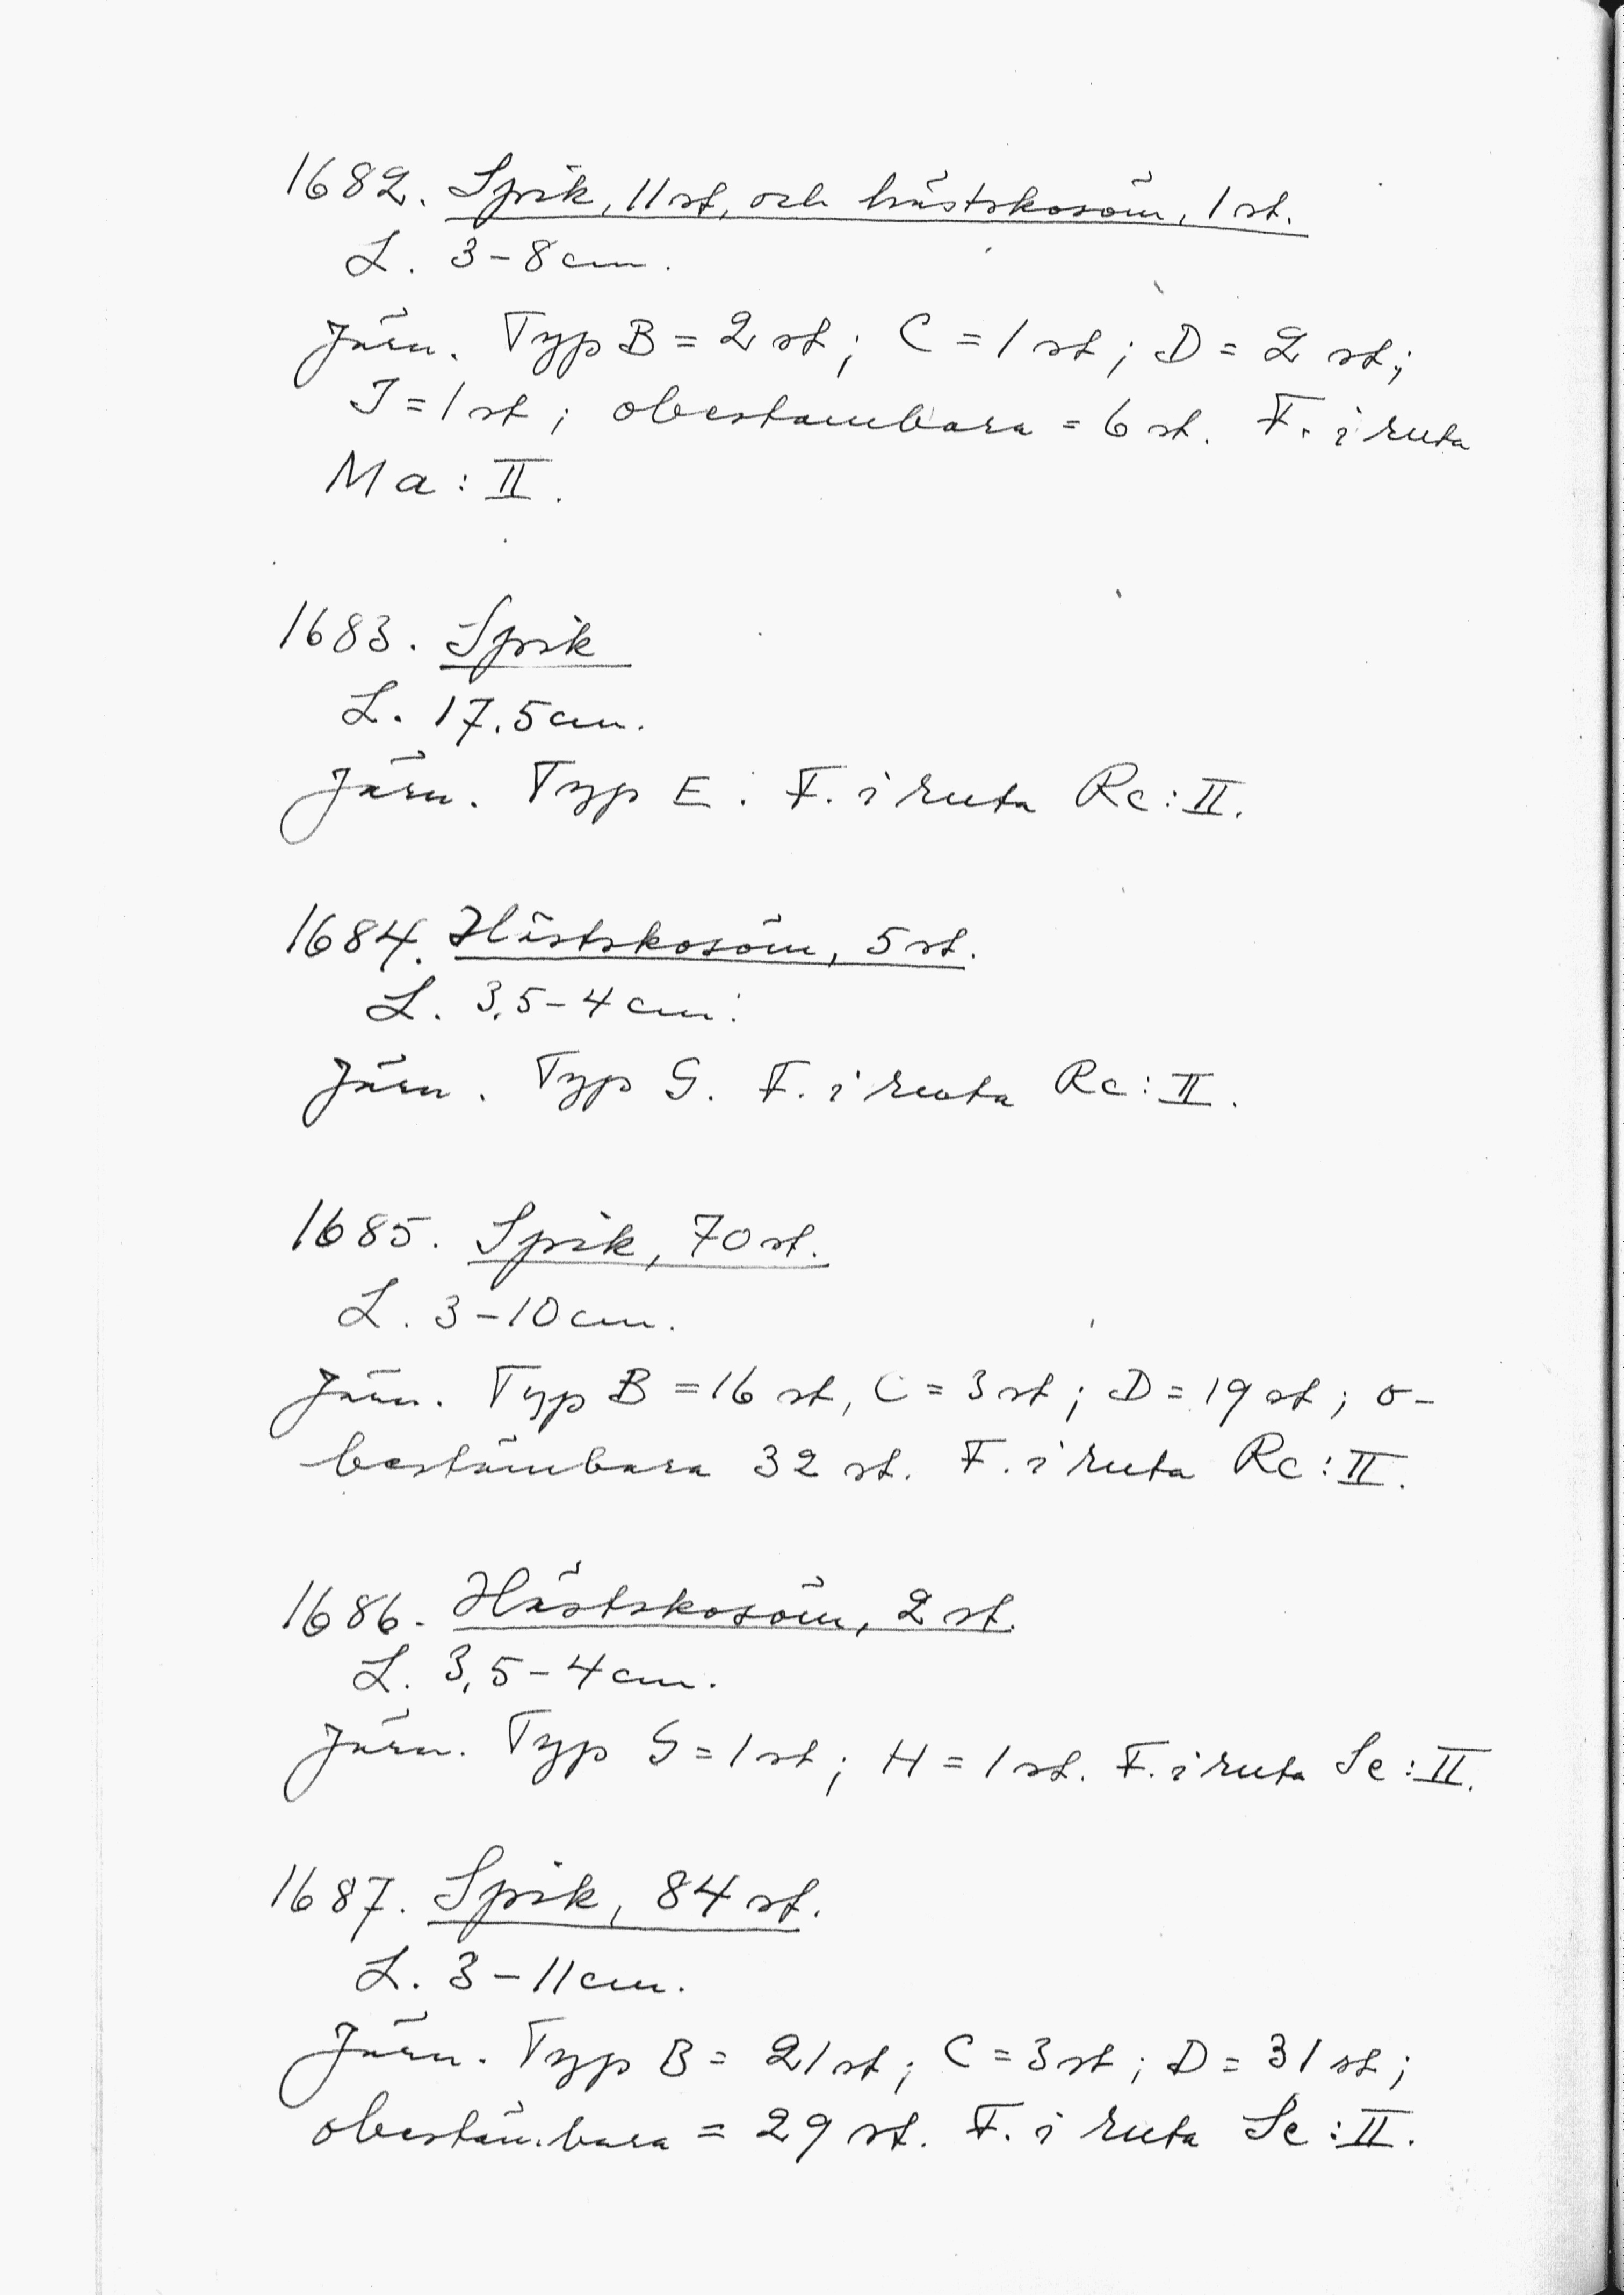 1682. Spik, 11 st, och hästskosöm, 1 st.
L. 3-8 cm.
Järn. Typ B = 2 st; C = 1 st; D = 2 st;
I = 1 st; obestämbara = 6 st. F. i ruta
Ma: II.
1683. Spik
L. 17.5 cm.
Järn. Typ E. F. i ruta Rc: II.
1684. Hästskosöm, 5 st.
L. 3,5-4 cm.
Järn. Typ G. F. i ruta Rc: II.
1685. Spik, 70 st.
L. 3-10 cm.
Järn. Typ B = 16 st, C = 3 st; D = 19 st; o-
bestämbara 32 st. F. i ruta Rc: II.
1686. Hästskosöm, 2 st.
L. 3,5-4 cm.
Järn. Typ G = 1 st; H = 1 st. F. i ruta Sc: II.
1687. Spik, 84 st.
L. 3-11 cm.
Järn. Typ B = 21 st; C = 3 st; D = 31 st;
obestämbara = 29 st. F. i ruta Sc: II.